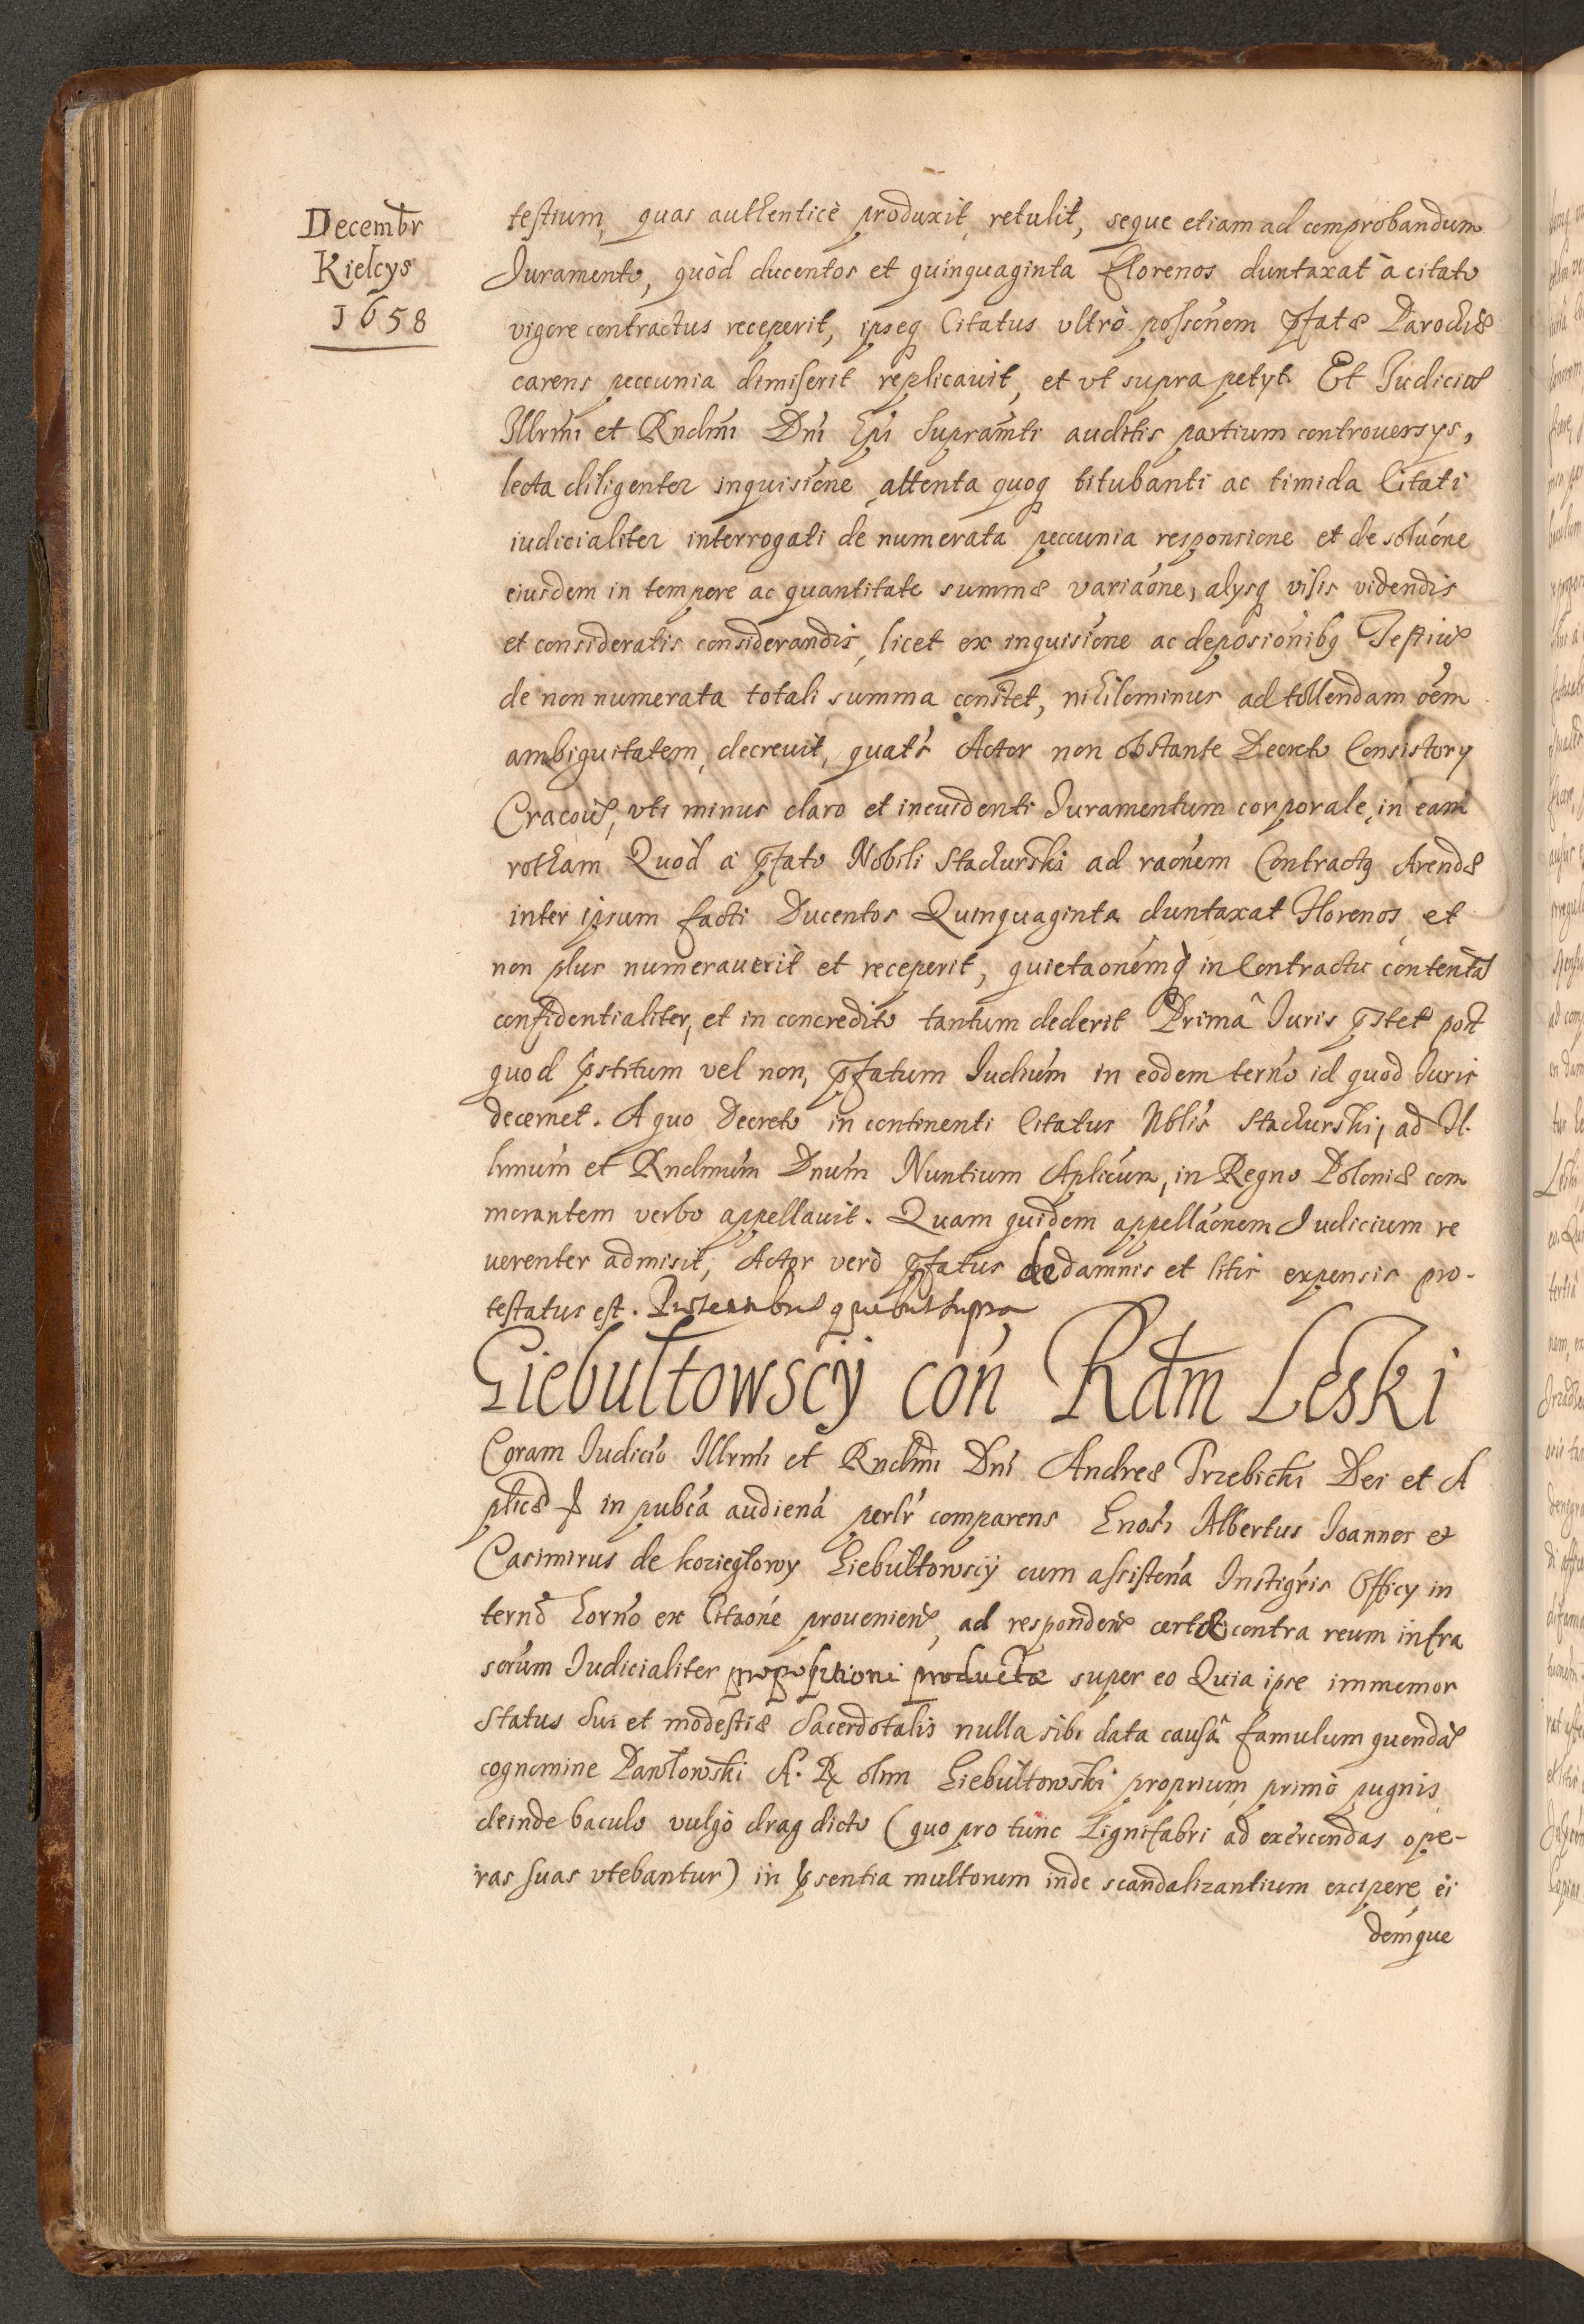 Decembr
Kielcys
1658
testium, quas authenticè produxit, retulit, seque etiam ad comprobandum
Juramento, quòd ducentos et quinquaginta Florenos duntaxat à citato
vigore contractus receperit, ipseq Citatus vltrò possónem pfatæ Parochiæ
carens peccunia dimiserit replicauit, et vt supra petyt. Et Judiciu
Illrmi et Rndmi Dni Epi Supramti auditis partium controuersys,
lecta diligenter inquisióne, attenta quoq titubanti ac timida Citati
iudicialiter interrogati de numerata peccunia responsione et de solúone
eiusdem in tempore ac quantitate summæ variaóne, alysq visis videndis
et consideratis considerandis, licet ex inquisióne ac deposiónibq Testiu
de non numerata totali summa constet, nihilominus ad tollendam óem
ambiguitatem, decreuit, quats Actor non obstante Decreto Consistory
Cracoui, vti minus claro et ineuidenti Juramentum corporale, in eam
rotham Quòd a pfato Nobili Stachurski ad raónem Contractq Arendæ
inter ipsum facti Ducentos Quinquaginta duntaxat Florenos, et
non plus numerauerit et receperit, quietaonémq in Contractu contenta
confidentialiter, et in concredito tantum dederit Primâ Juris pstet post
quod pstitum vel non, pfatum Judium in eodem terno id quod Juris
decernet. A quo Decreto in continenti Citatus Nblis Stachurski, ad Il.
lrmum et Rndmum Dnum Nuntium Aplicum, in Regno Poloniæ com
morantem verbo appellauit. Quam quidem appellaónem Judicium re
uerenter admisit, Actor verò pfatus de damnis et litis expensis pro-
testatus est. Pntibus quibus supra
Giebułtowscÿ cón Rdm Leski
Coram Judicio Illrmi et Rndmi Dni Andreæ Trzebicki Dei et A
plicæ S in pubca audiena perlr comparens Gnosi Albertus Joannes et
Casimirus de Kozieglowy Giebułtowscÿ cum assistena Instigris Officy in
terno horno ex Citaóne prouenien, ad responden certæ contra reum infra
scrum Judicialiter propositioni productæ super eo Quia ipse immemor
Status Sui et modestiæ Sacerdotalis nulla sibi data causâ famulum quenda
cognomine Pawłowski A. R olim Giebułtowski proprium primò pugnis
deinde baculo vulgò drag dicto (quo pro tunc Lignifabri ad exercendas ope-
ras suas vtebantur) in psentia multorum inde scandalizantium excipere, ei
demque